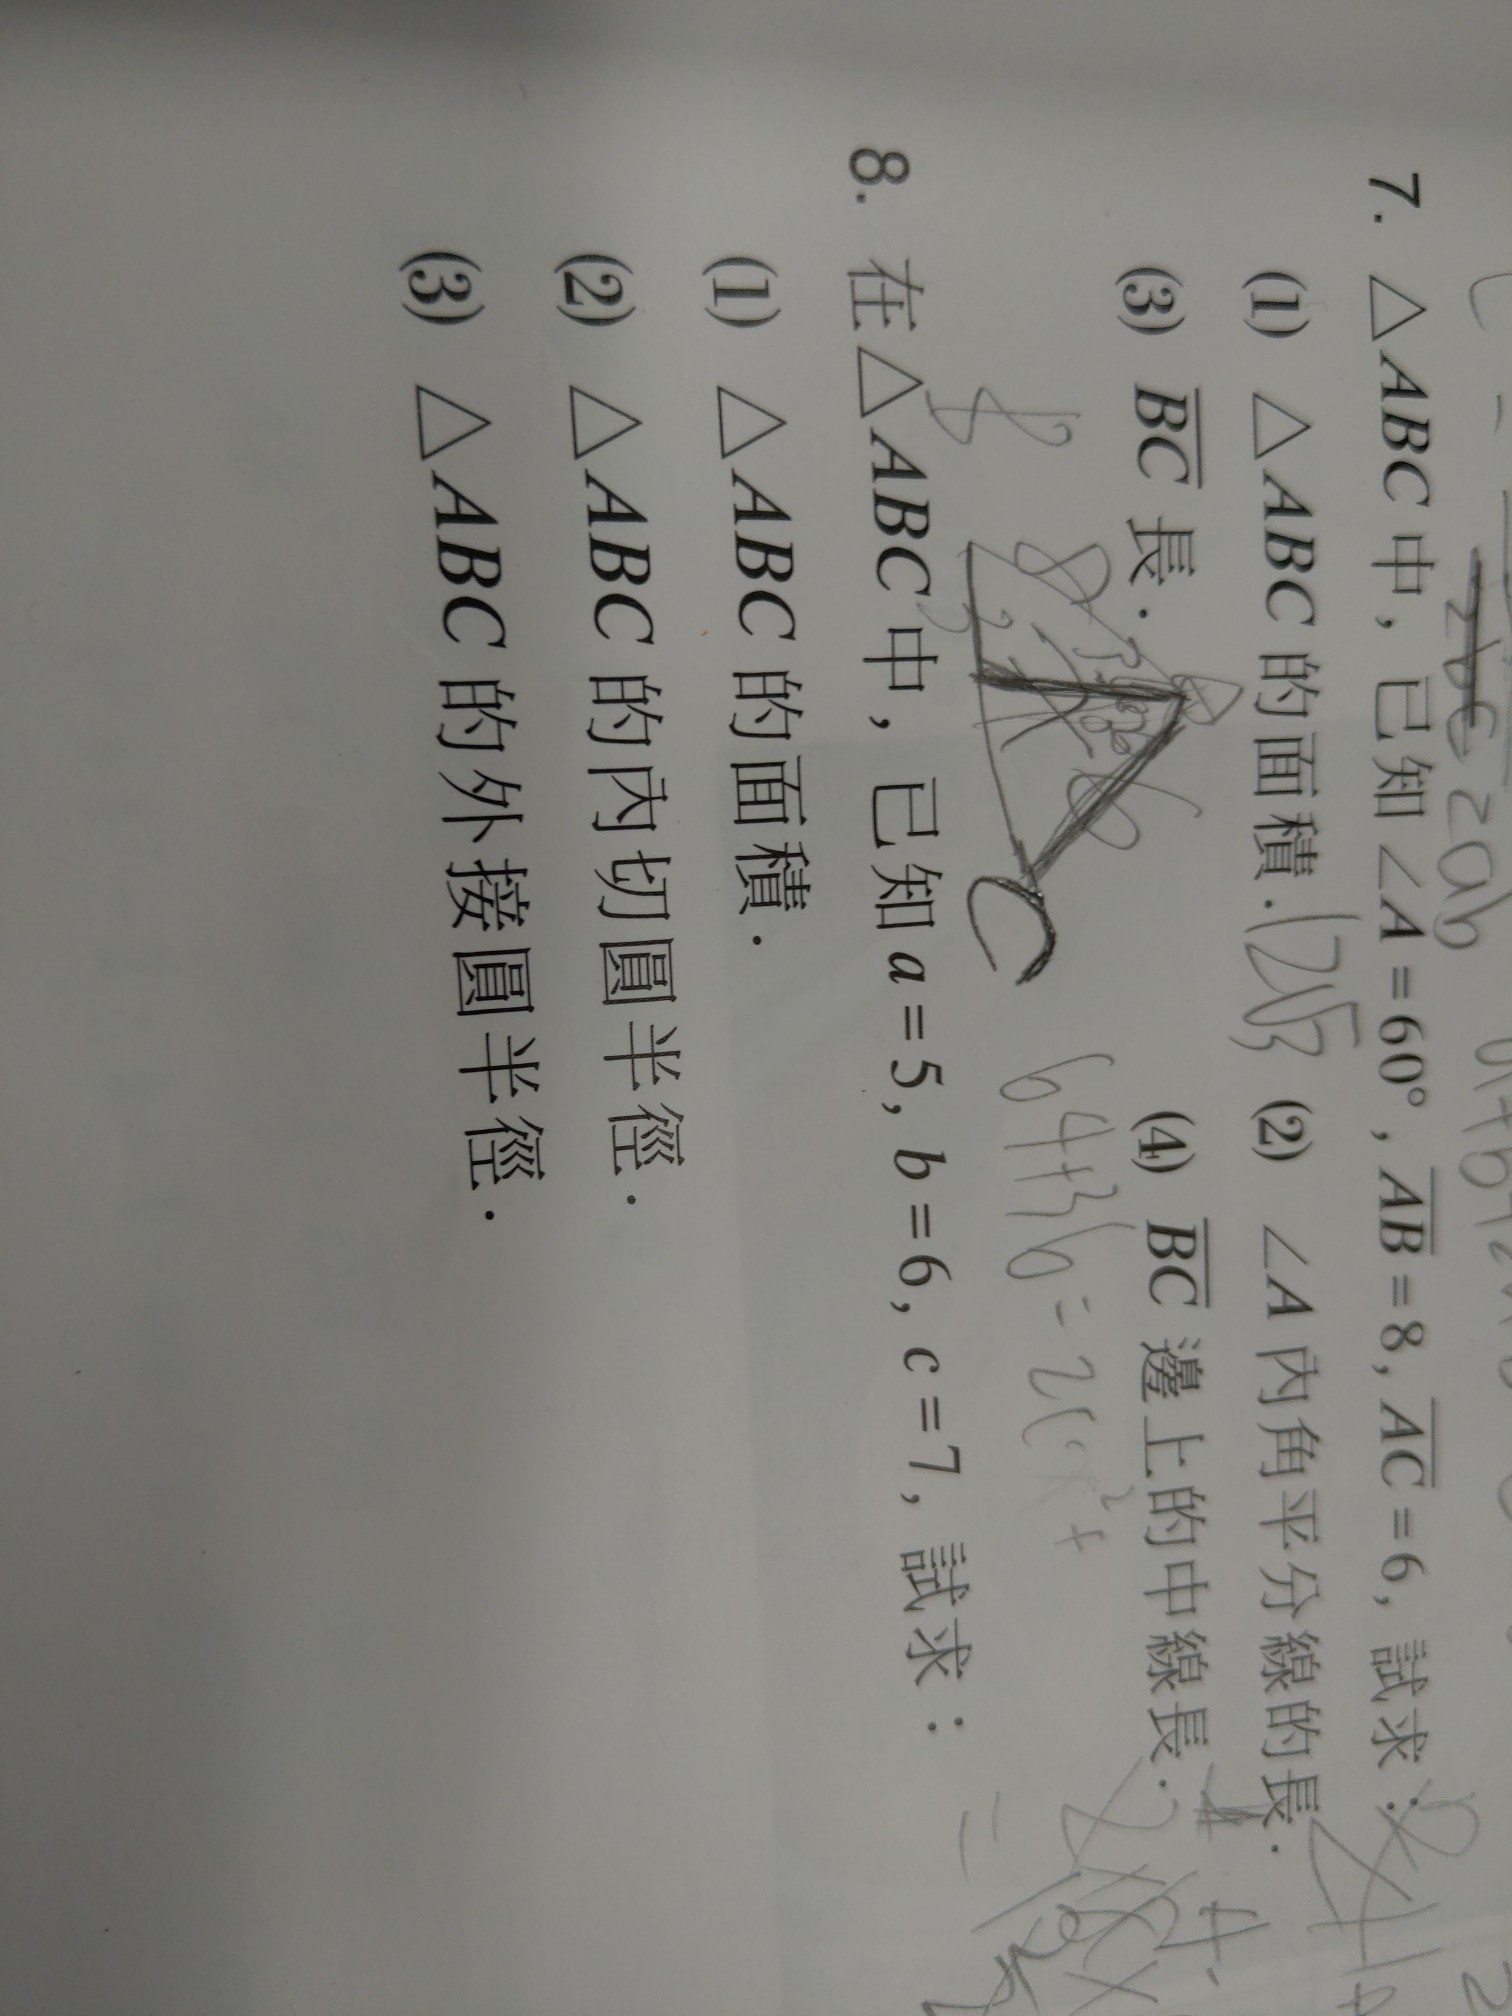 7. △ABC 中，已知 ∠A = 60°，AB = 8，AC = 6，試求：
(1) △ABC 的面積. 12√3 (2) ∠A 內角平分線的長.
(3) BC 長. (4) BC 邊上的中線長.
8
6
C
64+36=2(x²+
8. 在△ABC中，已知 a = 5, b = 6, c = 7，試求：
(1) △ABC 的面積.
(2) △ABC 的內切圓半徑.
(3) △ABC 的外接圓半徑.